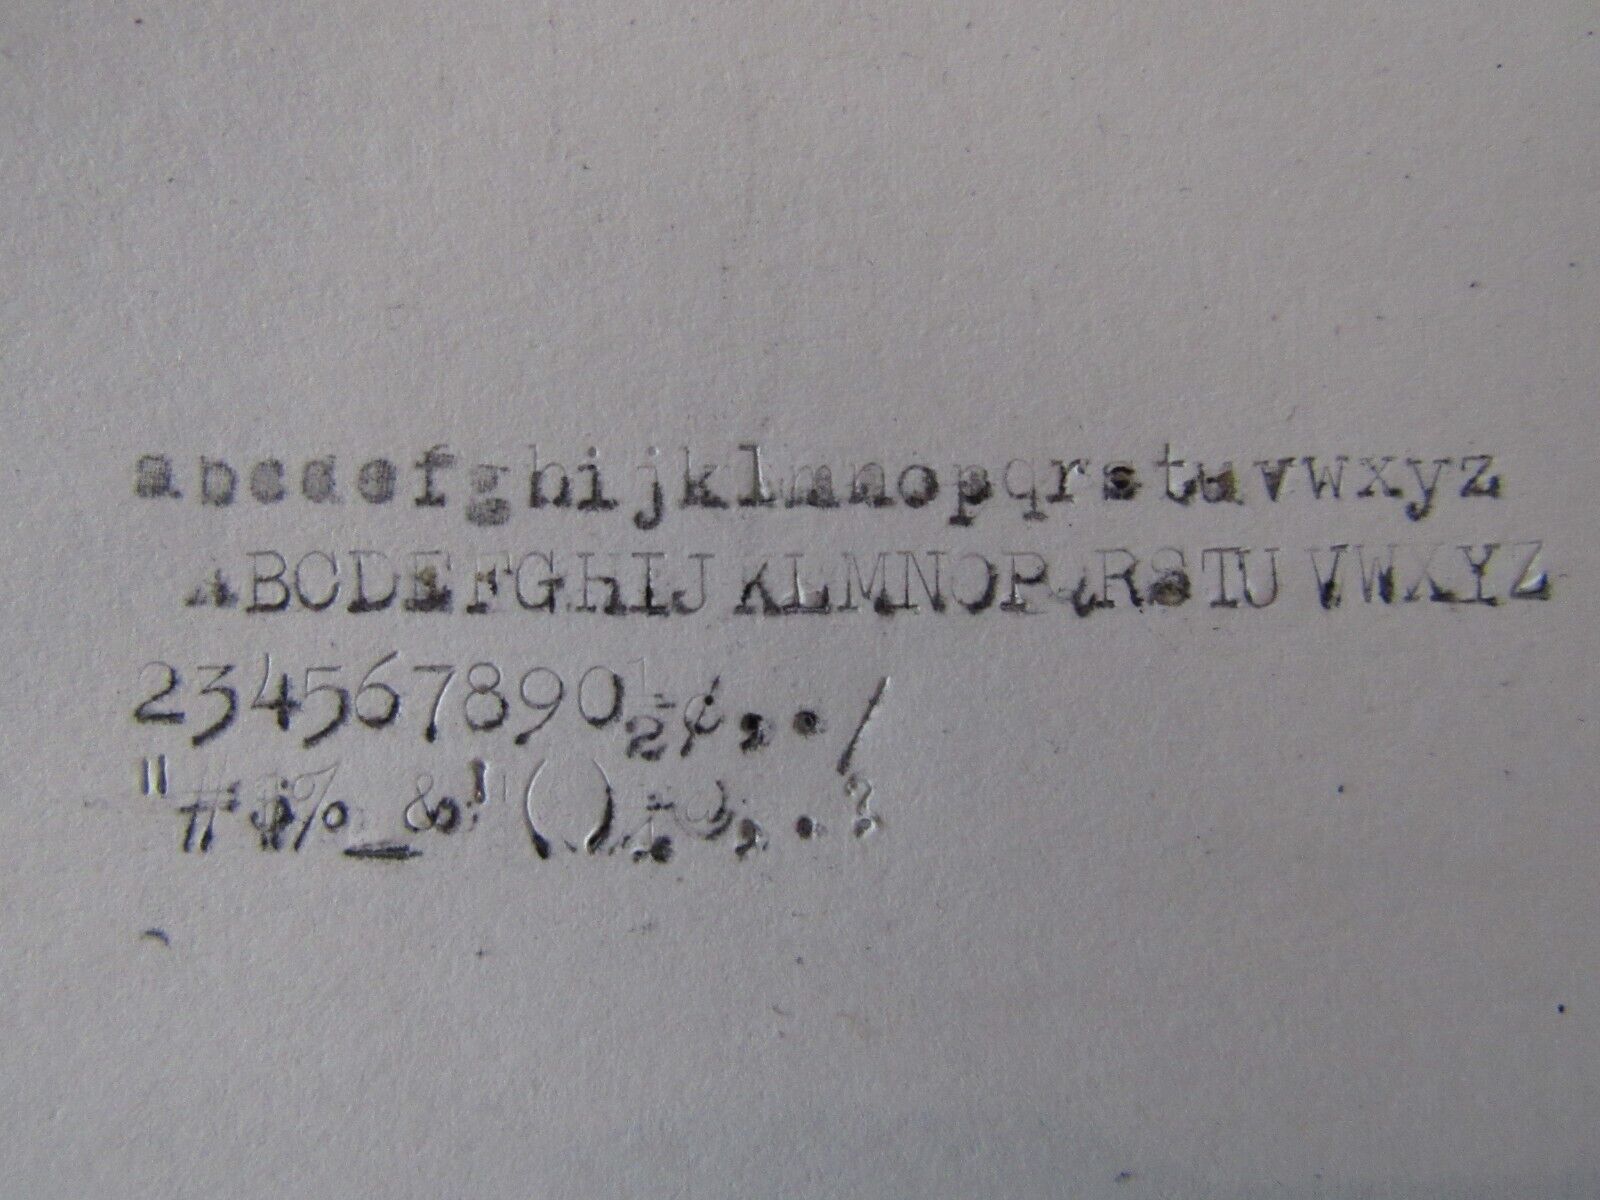 abcdefghijklmnopqrstuvwxyz
ABCDEFGHIJ KLMNOPQRSTU VWXYZ
234567890½¢,./
"#$%_&'"()¼@,.?